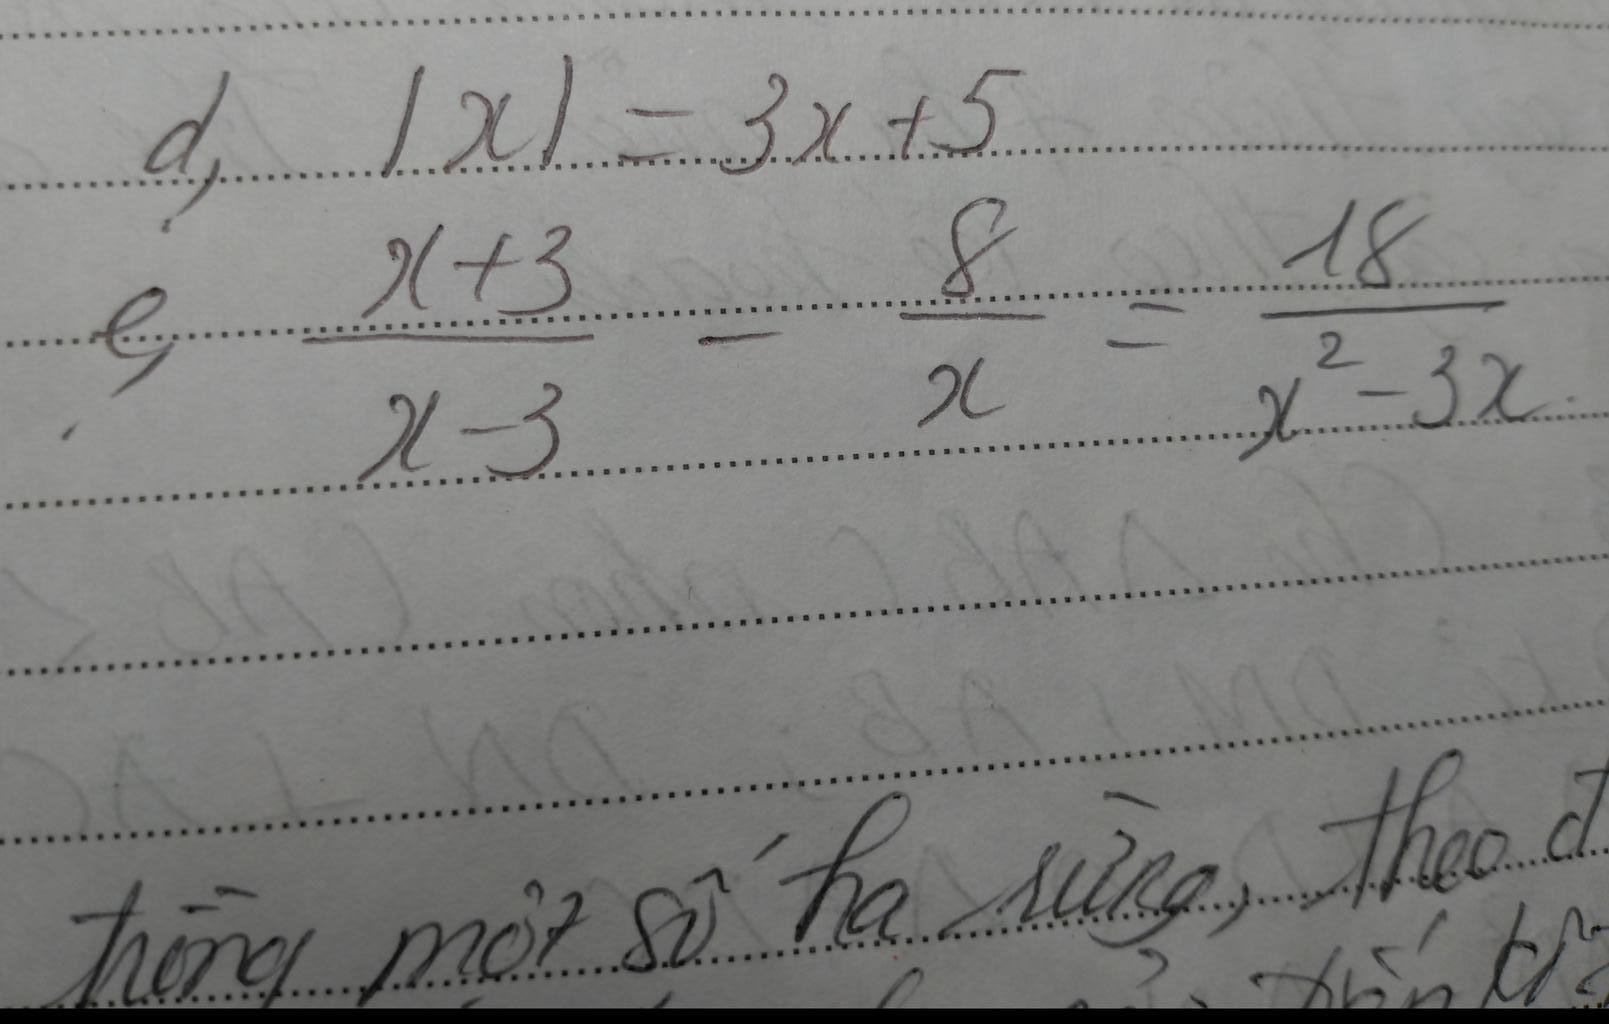 d, |x| = 3x + 5
e, \frac{x+3}{x-3} - \frac{8}{x} = \frac{18}{x^2 - 3x}
trồng một số ha rừng, theo